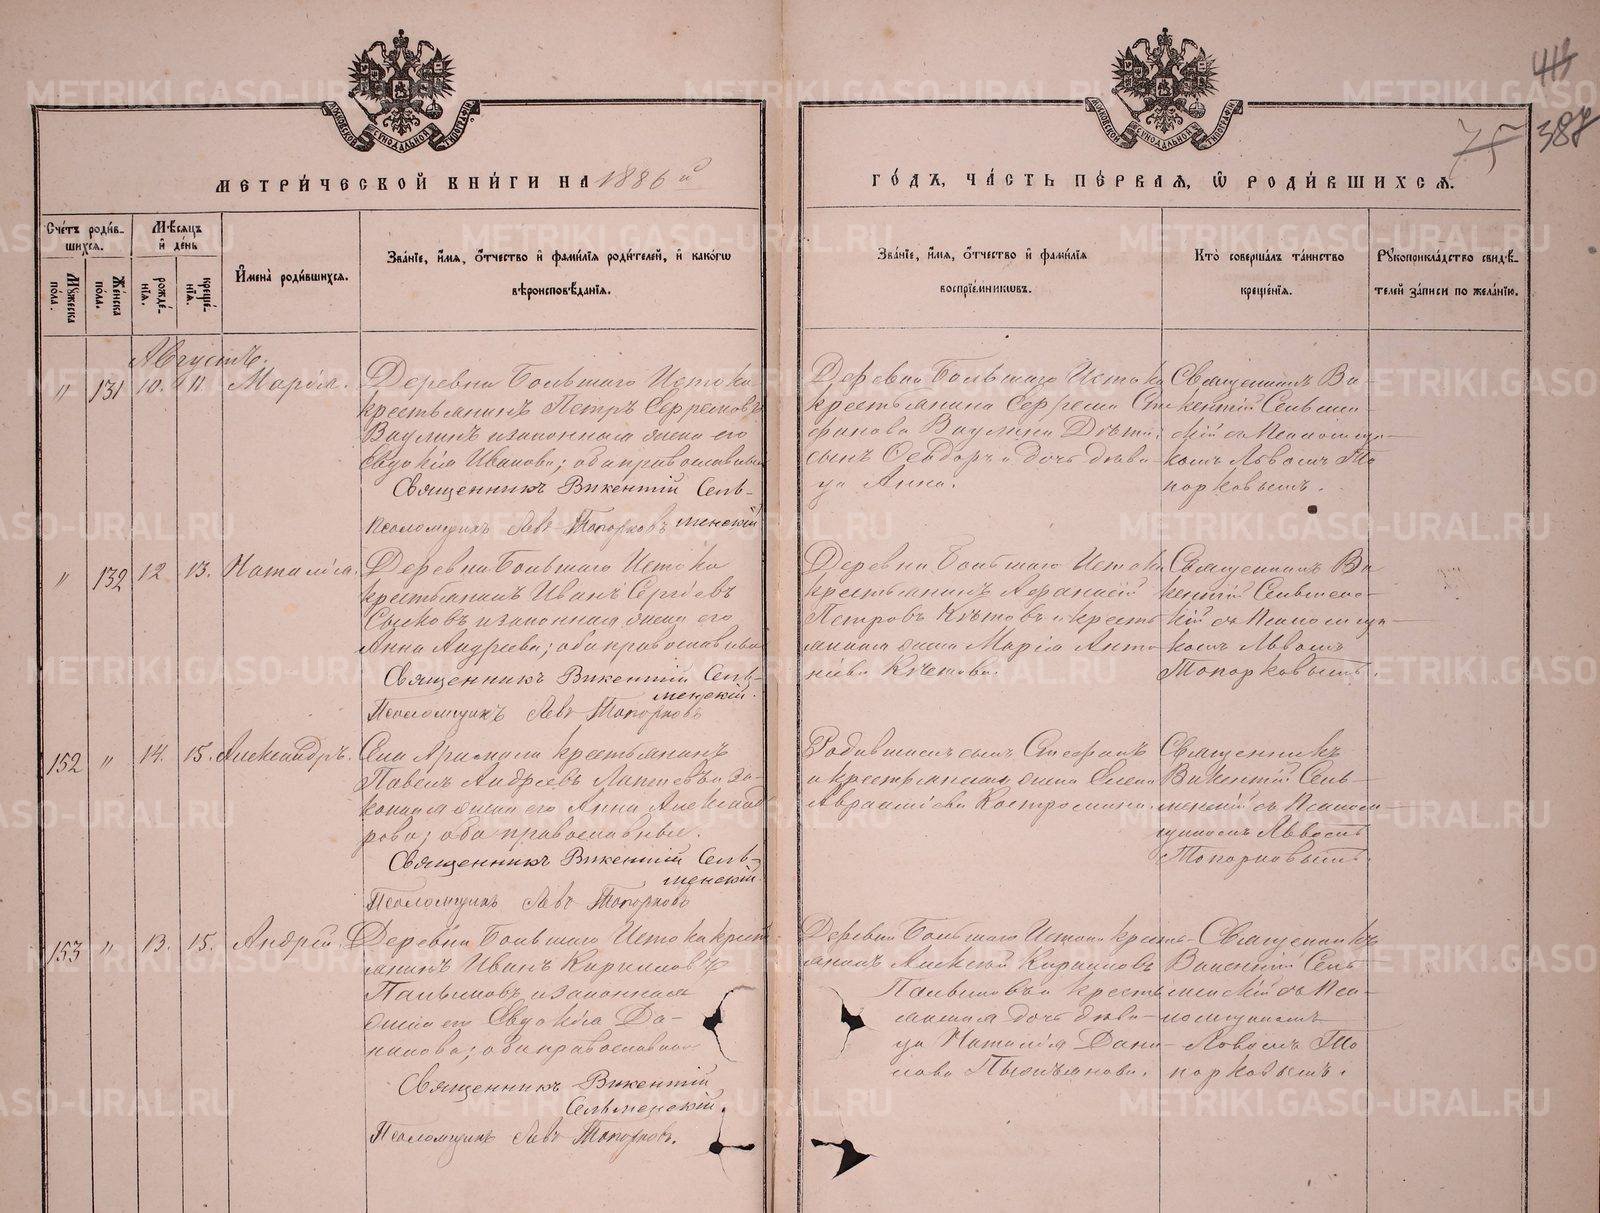 МЕТРИ́ЧЕСКОЙ КНИ́ГИ НА 1886 й
ГО́ДЪ, ЧА́СТЬ ПЕ́РВАѦ, Ѡ҆ РОДИ́ВШИХСѦ.
44
75 387
Сче́тъ роди́в-
шихся.
Мꙋ́жеска пóла.
Же́нска пóла.
Мѣ́сяцъ и҆ де́нь
рожде́-
нїя.
креще́-
нїя.
И҆мена̀ роди́вшихся.
Зва́нїе, и҆́мя, ѻ҆́тчество и҆ фами́лїя роди́телей, и҆ како́гѡ
вѣроисповѣ́данїя.
Зва́нїе, и҆́мя, ѻ҆́тчество и҆ фами́лїя
воспрїе́мникѡвъ.
Кто̀ соверша́лъ та́инство
креще́нїя.
Рꙋкоприкла́дство свидѣ́-
телей за́писи по жела́нїю.
Августъ.
" 131 10. 11. Марія.
Деревни Большаго Истока
крестьянинъ Петръ Сергеевъ
Ваулинъ и законная жена его
Евдокія Иванова; оба православные
Священникъ Викентій Сель-
менскій
Псаломщикъ Левъ Топорковъ
Деревни Большаго Истока
крестьянина Сергея Сте-
фанова Ваулина дѣти:
сынъ Ѳеодоръ и дочь дѣви-
ца Анна.
Священникъ Ви-
кентій Сельмен-
скій съ Псаломщи-
комъ Львомъ То-
порковымъ.
" 132 12 13. Наталія.
Деревни Большаго Истока
крестьянинъ Иванъ Сергѣевъ
и законная жена его
Анна Андреева; оба православные
Священникъ Викентій Сель-
менскій.
Псаломщикъ Левъ Топорковъ
Деревни Большаго Истока
крестьянинъ Афанасій
Петровъ и кресть-
янская жена Марія Анто-
нова
Священникъ Ви-
кентій Сельмен-
скій съ Псаломщи-
комъ Львомъ
Топорковымъ.
152 " 14. 15. Александръ.
Села Арамили крестьянинъ
Павелъ Андреевъ Лаптевъ и за-
конная жена его Анна Александ-
рова; оба православные.
Священникъ Викентій Сель-
менскій.
Псаломщикъ Левъ Топорковъ
сынъ Стефанъ
и крестьянская жена Елена
Аврааміева Костромина.
Священникъ
Викентій Сель-
менскій съ Псалом-
щикомъ Львомъ
Топорковымъ.
153 " 13. 15. Андрей.
Деревни Большаго Истока крест-
янинъ Иванъ Кирилловъ
Пальцовъ и законная
жена его Евдокія Да-
нилова; оба православные
Священникъ Викентій
Сельменскій.
Псаломщикъ Левъ Топорковъ.
Деревни Большаго Истока кресть-
янинъ Алексѣй Кирилловъ
и кресть-
янская дочь дѣви-
ца Наталія Дани-
лова
Священникъ
Викентій Сель-
менскій съ Пса-
ломщикомъ
Львомъ То-
порковымъ.
METRIKI.GASO-URAL.RU